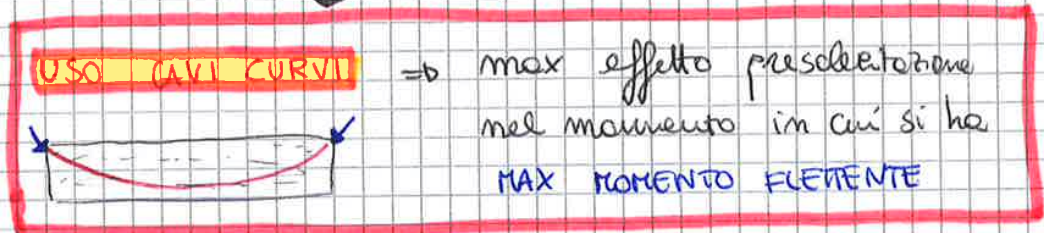 USO CAVI CURVI => max effetto presollecitazione
nel momento in cui si ha
MAX MOMENTO FLETTENTE